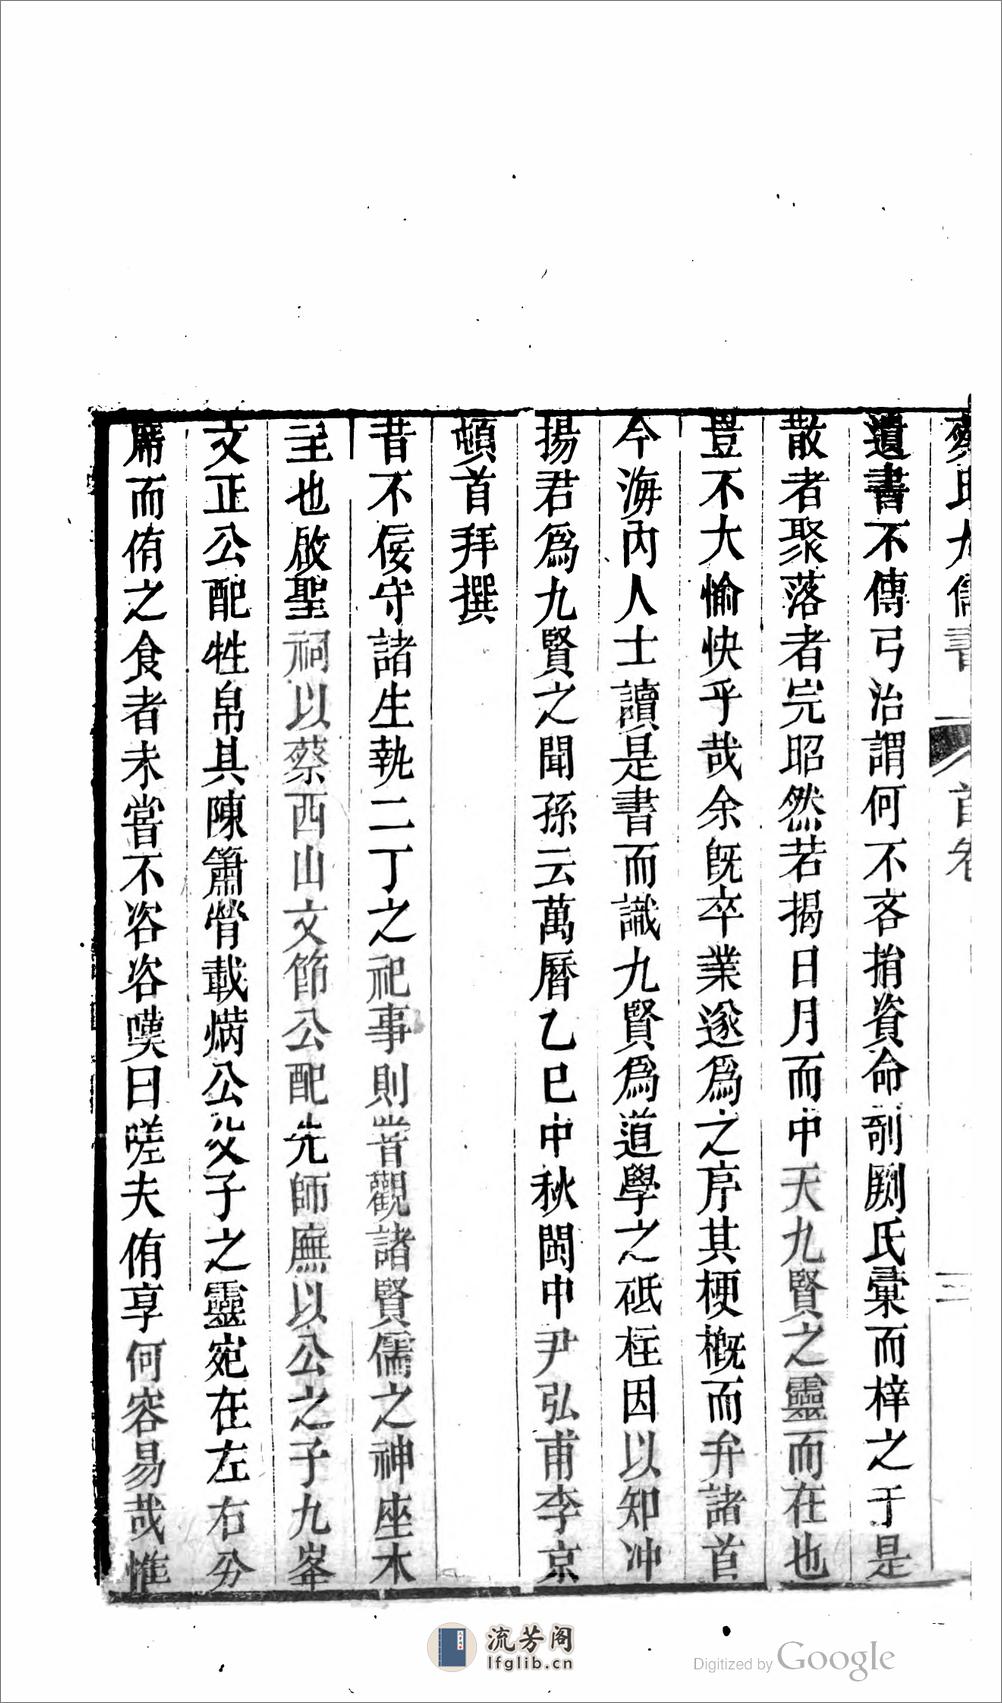 蔡氏九儒書 首卷 三
遺書不傳弓冶謂何不吝捐資命剞劂氏彙而梓之于是
散者聚落者完昭然若揭日月而中天九賢之靈而在也
豈不大愉快乎哉余既卒業遂爲之序其梗槪而弁諸首
今海內人士讀是書而識九賢爲道學之砥柱因以知冲
揚君爲九賢之聞孫云萬曆乙巳中秋閩中尹弘甫李京
頓首拜撰
昔不佞守諸生執二丁之祀事則嘗觀諸賢儒之神座木
主也啟聖祠以蔡西山文節公配先師廡以公之子九峯
文正公配牲帛具陳簫膋載焫公父子之靈宛在左右分
席而侑之食者未嘗不咨咨嘆曰嗟夫侑享何容易哉惟
流芳阁
lfglib.cn
Digitized by Google